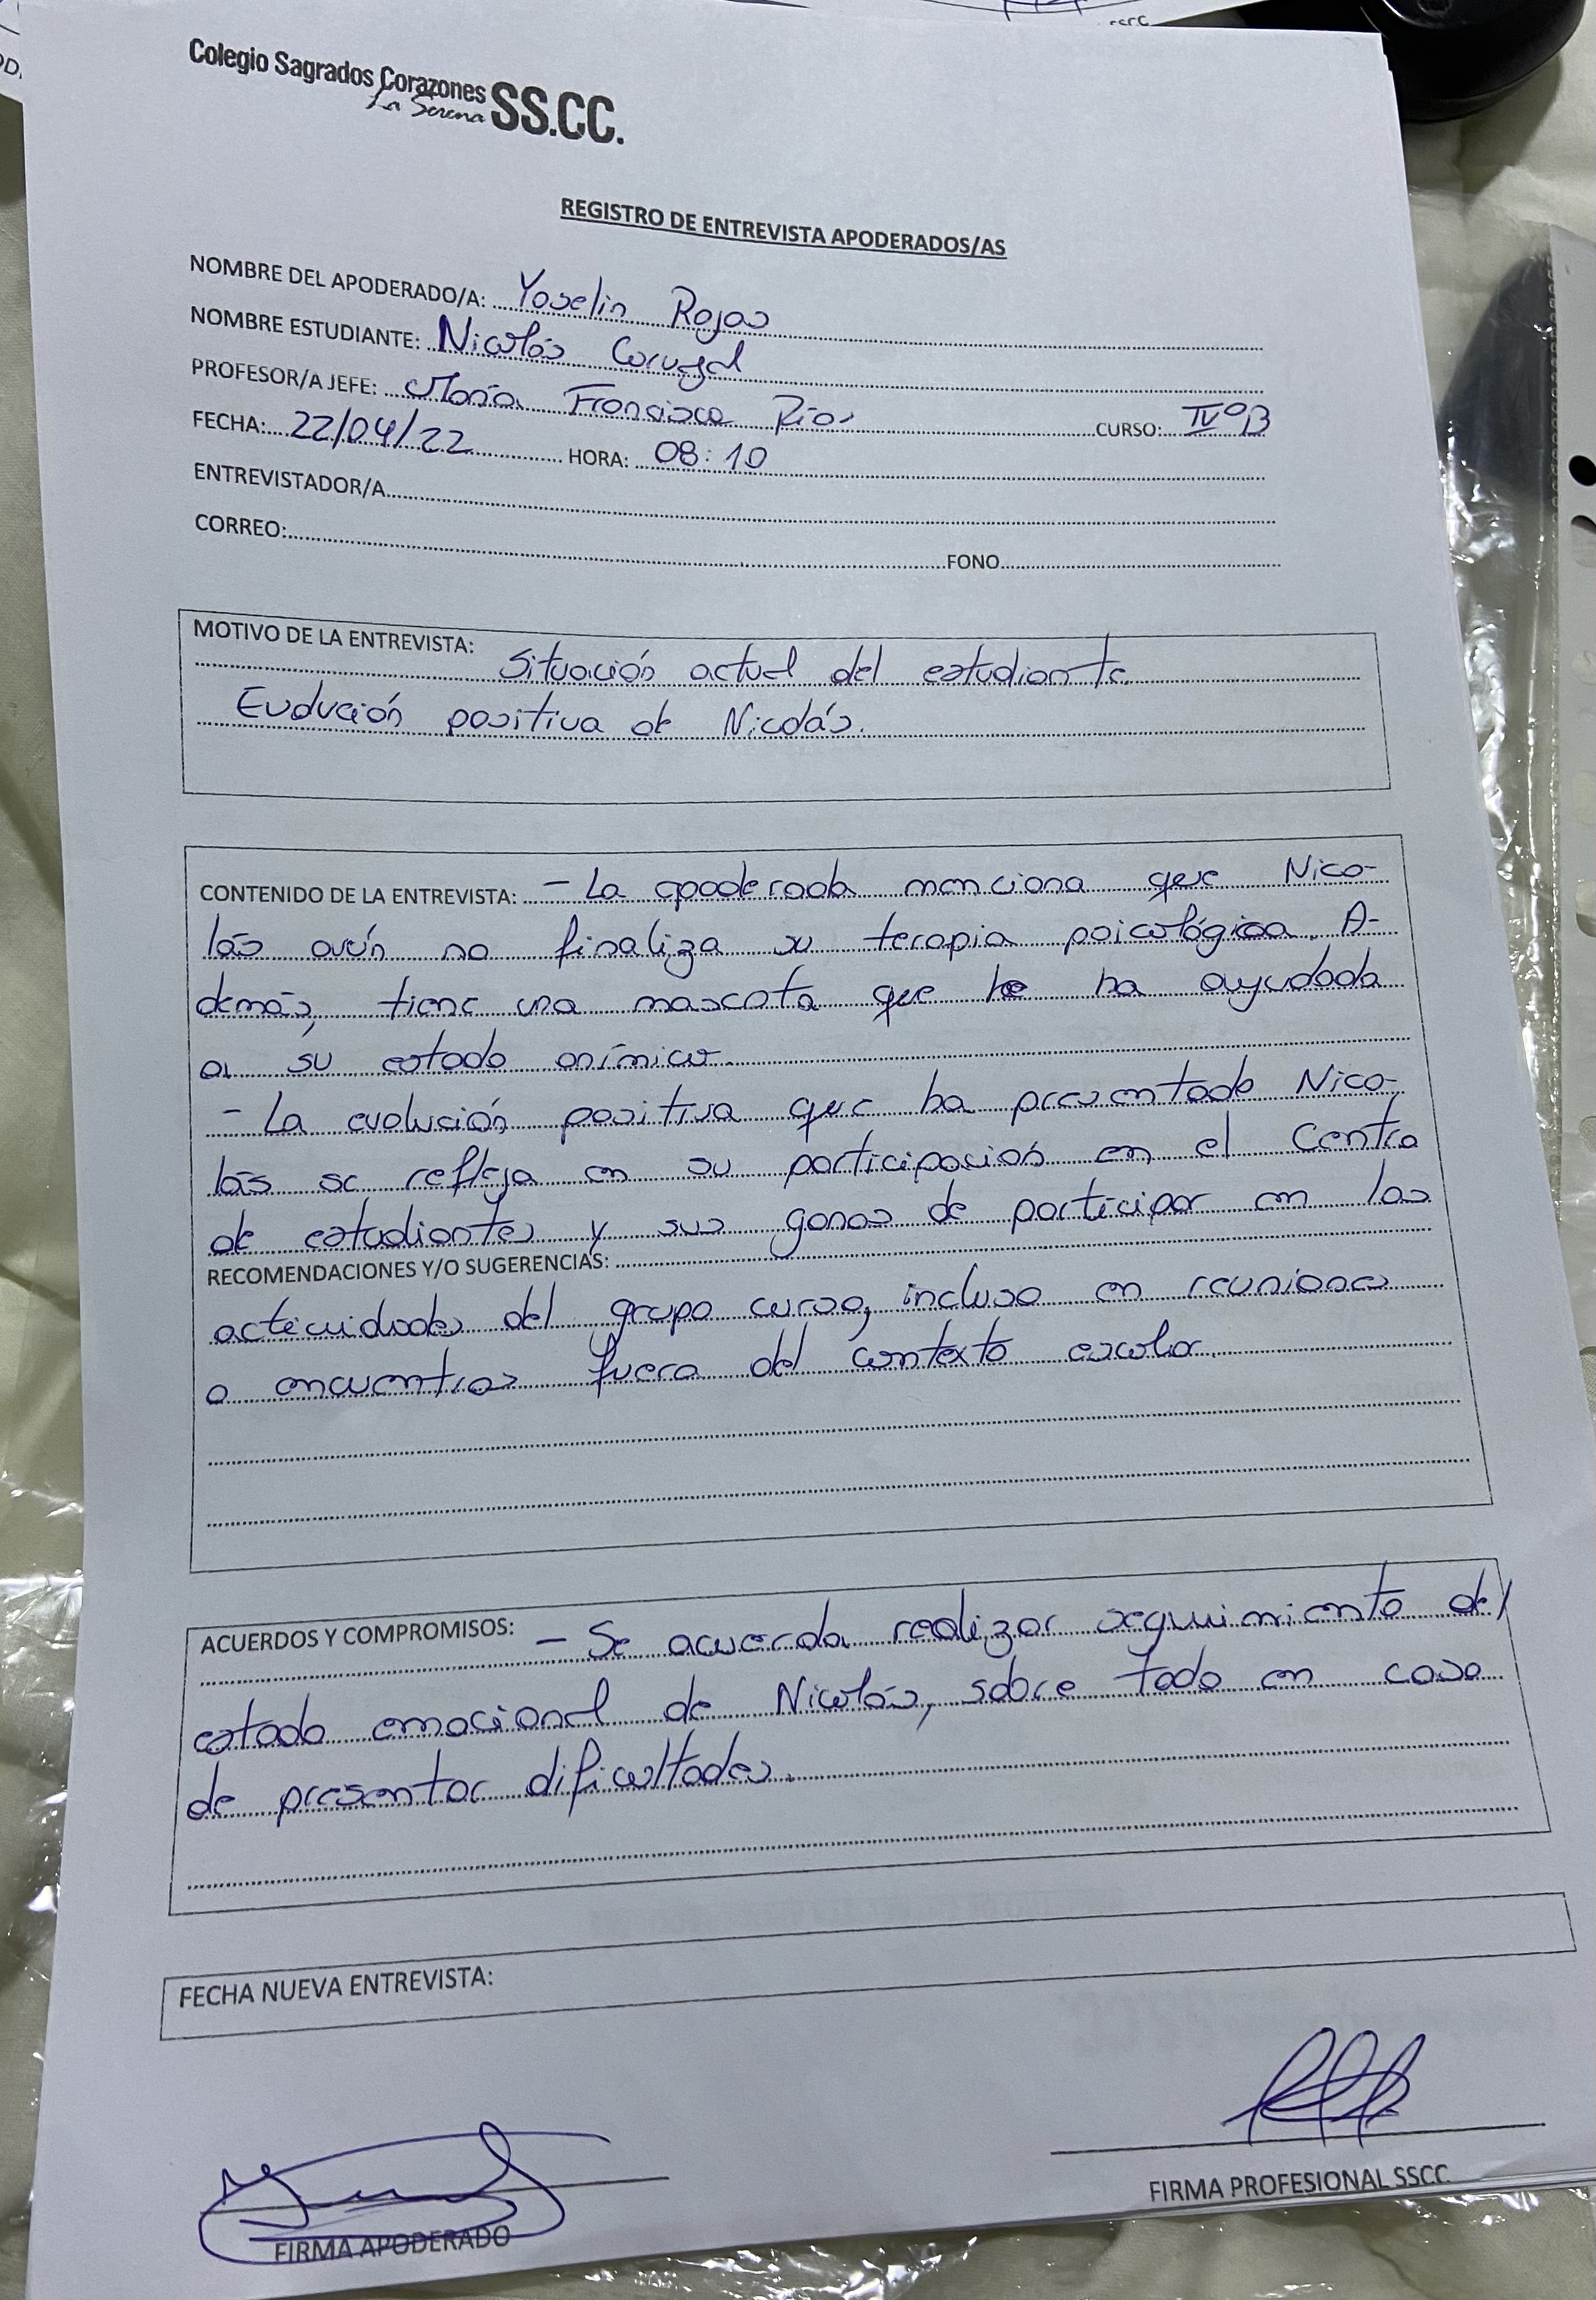 Colegio Sagrados Corazones SS.CC.
La Serena
REGISTRO DE ENTREVISTA APODERADOS/AS
NOMBRE DEL APODERADO/A: Yoselin Rojas
NOMBRE ESTUDIANTE: Nicolás
PROFESOR/A JEFE: María Francisca Ríos CURSO: IVºB
FECHA: 22/04/22 HORA: 08:10
ENTREVISTADOR/A
CORREO: FONO
MOTIVO DE LA ENTREVISTA: Situación actual del estudiante.
Evolución positiva de Nicolás.
CONTENIDO DE LA ENTREVISTA: - La apoderada menciona que Nico-
lás aún no finaliza su terapia psicológica. A-
demás, tiene una mascota que le ha ayudado
a su estado anímico.
- La evolución positiva que ha presentado Nico-
lás se refleja en su participación en el Centro
de estudiantes y sus ganas de participar en las
RECOMENDACIONES Y/O SUGERENCIAS:
actividades del grupo curso, incluso en reuniones
o encuentros fuera del contexto escolar.
ACUERDOS Y COMPROMISOS: - Se acuerda realizar seguimiento del
estado emocional de Nicolás, sobre todo en caso
de presentar dificultades.
FECHA NUEVA ENTREVISTA:
FIRMA PROFESIONAL SSCC
FIRMA APODERADO